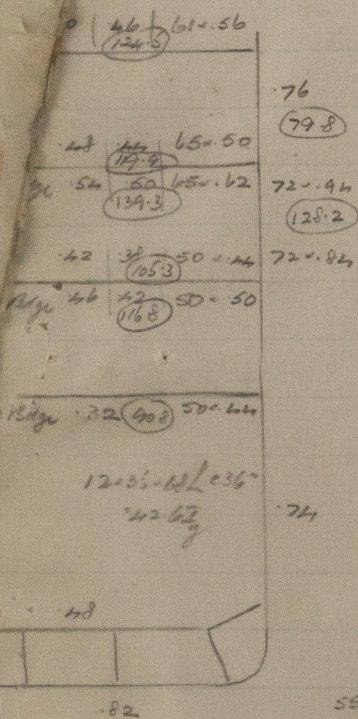 .46 61 × .56
124.5
.76
79.8
.48 .44 65 × .50
119.9
.54 .50 65 × .62 72 × .94
139.3
128.2
.42 .38 50 × .44 72 × .84
105.3
Bdge .46 .42 50 × .50
116.8
Bdge .32 40.8 50 × .44
.74
.48
.82